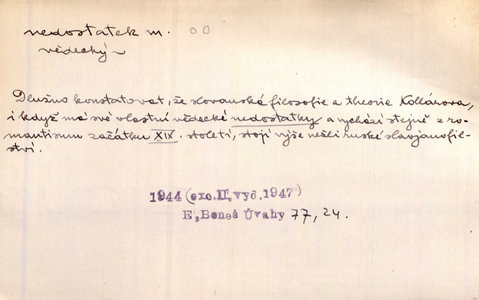 nedostatek m. 00
vědecký
Dlužno konstatovat, že slovanská filosofie a theorie Kollárova,
i když má své vlastní vědecké nedostatky a vychází stejně z ro-
mantismu začátku XIX. století, stojí výše nežli ruské slavjanofil-
ství.
1944 (exc. II. vyd. 1947)
E. Beneš Úvahy 77, 24.